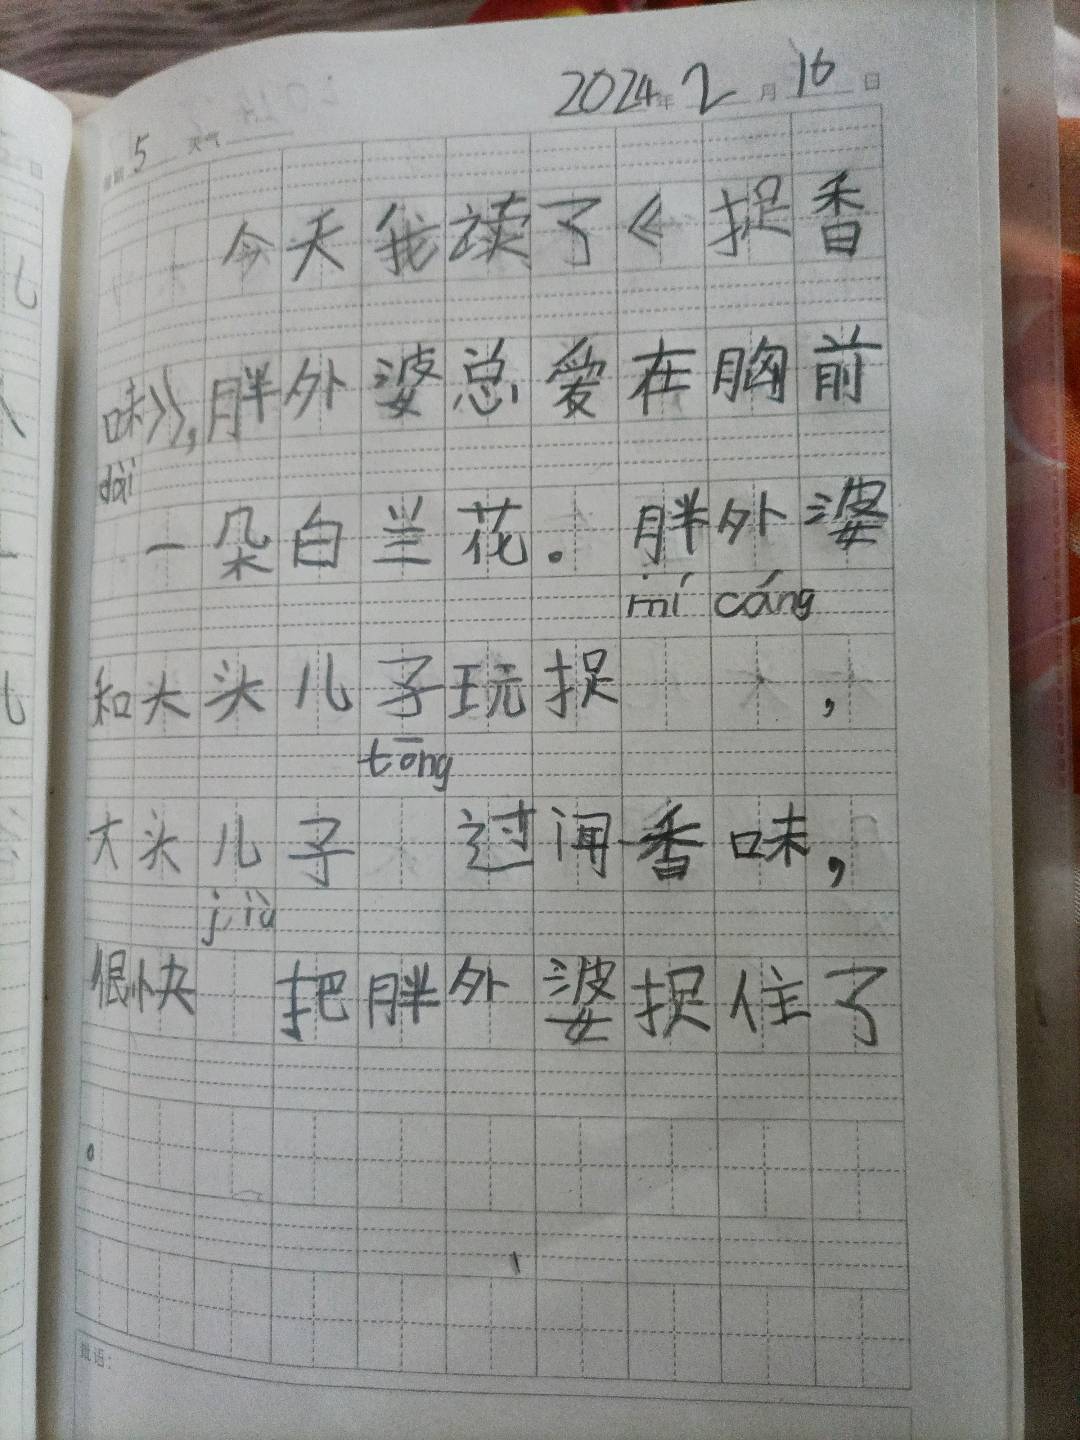 2024年2月16日
星期5 天气
今天我读了《捉香
味》,胖外婆总爱在胸前
dài
一朵白兰花。胖外婆
mí cáng
和大头儿子玩捉 ,
tōng
大头儿子 过闻香味,
jiù
很快 把胖外婆捉住了
。
批语: